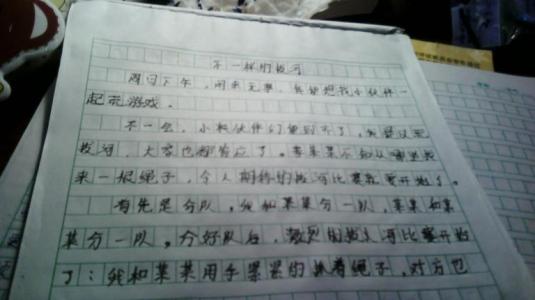 不一样的拔河
周日下午，闲来无事，我便想找小伙伴一
起玩游戏。
不一会，小伙伴们便到齐了，我提议玩
拔河，大家也都答应了。李某某不知从哪里找
来一根绳子，令人期待的拔河比赛就要开始了。
首先是分队。我和某某分一队，某某和某
某分一队。分好队后，激烈的拔河比赛开始
了：我和某某用手紧紧的抓着绳子，对方也